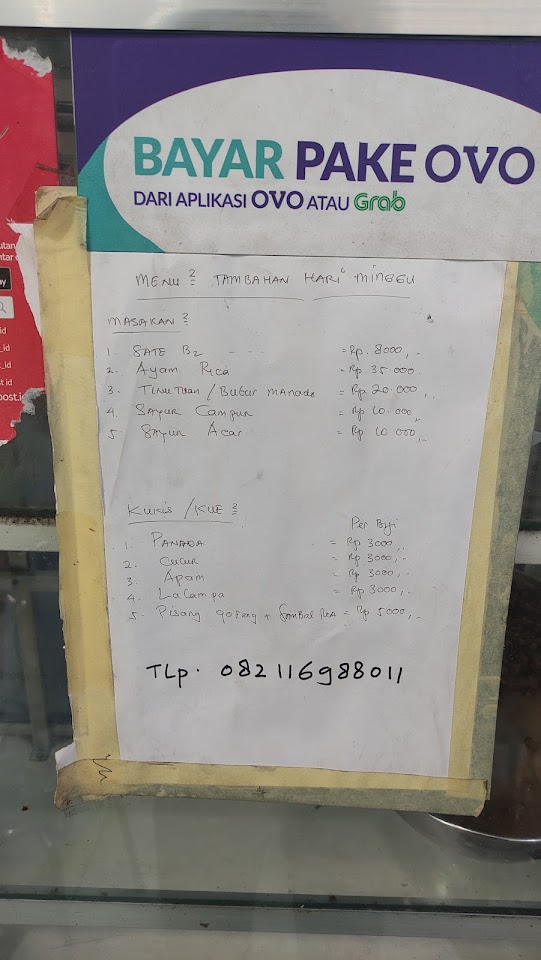 BAYAR PAKE OVO
DARI APLIKASI OVO ATAU Grab
MENU² TAMBAHAN HARI MINGGU
MASAKAN²
1. SATE B2 - - - = Rp. 8000,-
2. Ayam Rica = Rp 35 000
3. TINUTUAN / Bubur manado = Rp 20 000,-
4. SAYUR Campur = Rp 10.000,-
5. SAYUR Acar = Rp 10 000,-
KUKIS / KUE²
Per Biji
1. PANADA = Rp 3000,-
2. CUCUR = Rp 3000,-
3. APAM = Rp 3000,-
4. LaLampa = Rp 3000,-
5. Pisang goreng + Sambal roa = Rp 5000,-
TLp. 082116988011